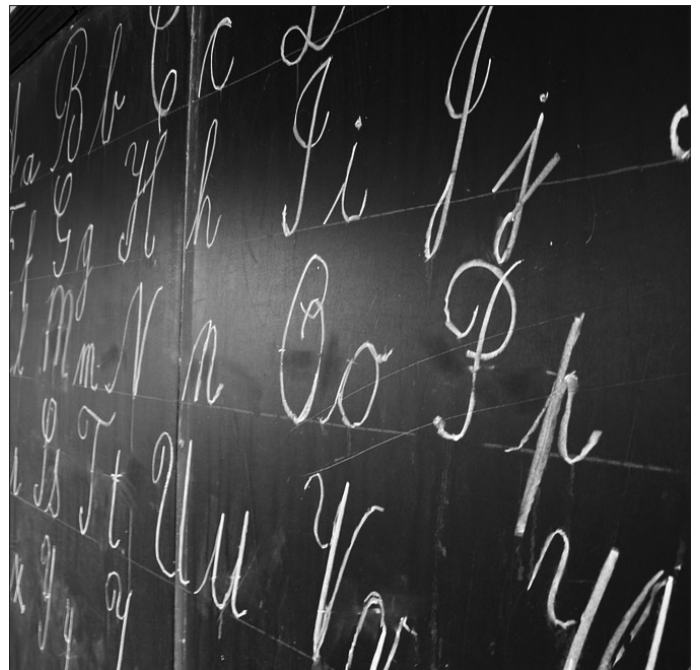 a B b C c
f G g H h I i J j
l M m N n O o P p
S s T t U u V v W
x Y y